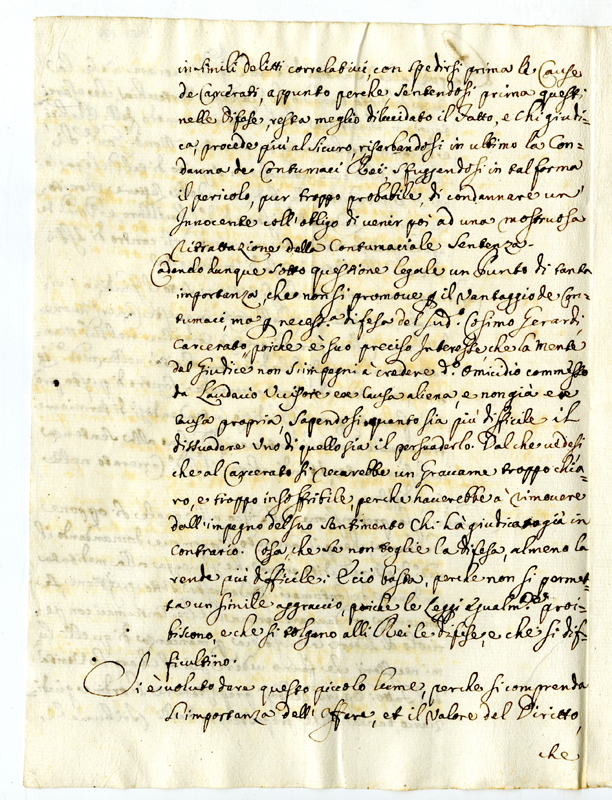 in simili delitti correlativi, con spedirsi prima le Cause
de Carcerati, appunto perche sentendosi prima questi
nelle difese, resta meglio dilucidato il Fatto, e chi giudi=
ca, procede più al sicuro, riserbandosi in ultimo la Con=
danna de Contumaci Rei: sfuggendosi in tal forma
il pericolo, pur troppo probabile, di condannare un'
Innocente coll'obligo di venir poi ad una mostruosa
Ritrattazione della Contumaciale Sentenza.
Cadendo dunque sotto questione legale un Punto di tanta
importanza, che non si promove p il vantaggio de Con=
tumaci, ma p necess.a difesa del sud.o Cosimo Gerardi,
Carcerato, poiche è suo preciso Interesse che la Mente
del Giudice non s'impegni à credere d.o Omicidio commesso
da Laudavio Uccisore ex causa aliena, e non già ex
causa propria, sapendosi quanto sia più difficile il
dissuadere uno di quello sia il persuaderlo. Dal che vedesi
che al Carcerato si recarebbe un Gravame troppo chia=
ro, e troppo insoffribile, perche haverebbe à rimovere
dall'impegno del suo sentimento Chi hà giudicato già in
contrario. Cosa, che se non toglie la difesa, almeno la
rende più difficile: E ciò basta, perche non si permet=
ta un simile aggravio, poiche le Leggi egualm.te proi=
biscono, e che si tolgano alli Rei le difese, e che si dif=
ficultino.
Si è voluto dare questo piccolo lume, perche si comprenda
l'importanza dell'Affare, et il valore del Diritto,
che